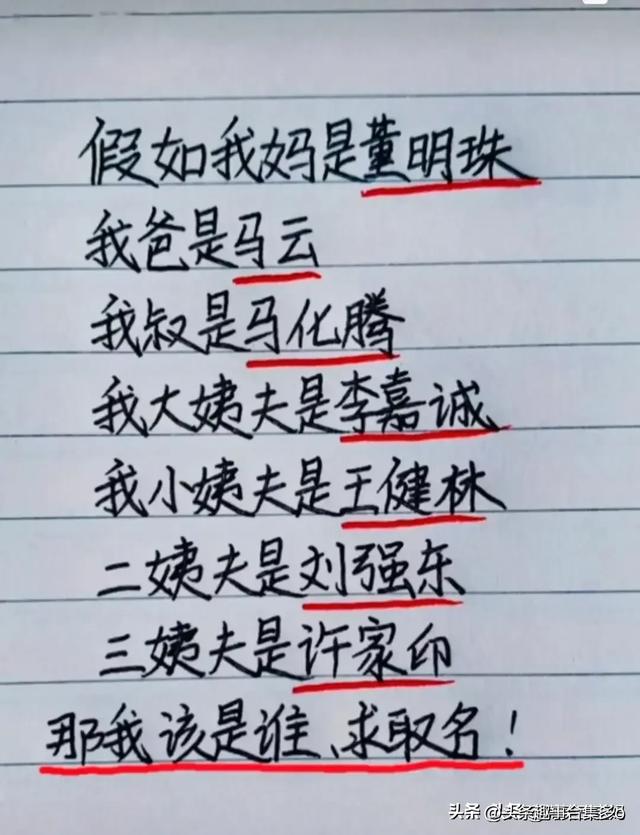 假如我妈是董明珠
我爸是马云
我叔是马化腾
我大姨夫是李嘉诚
我小姨夫是王健林
二姨夫是刘强东
三姨夫是许家印
那我该是谁、求取名!